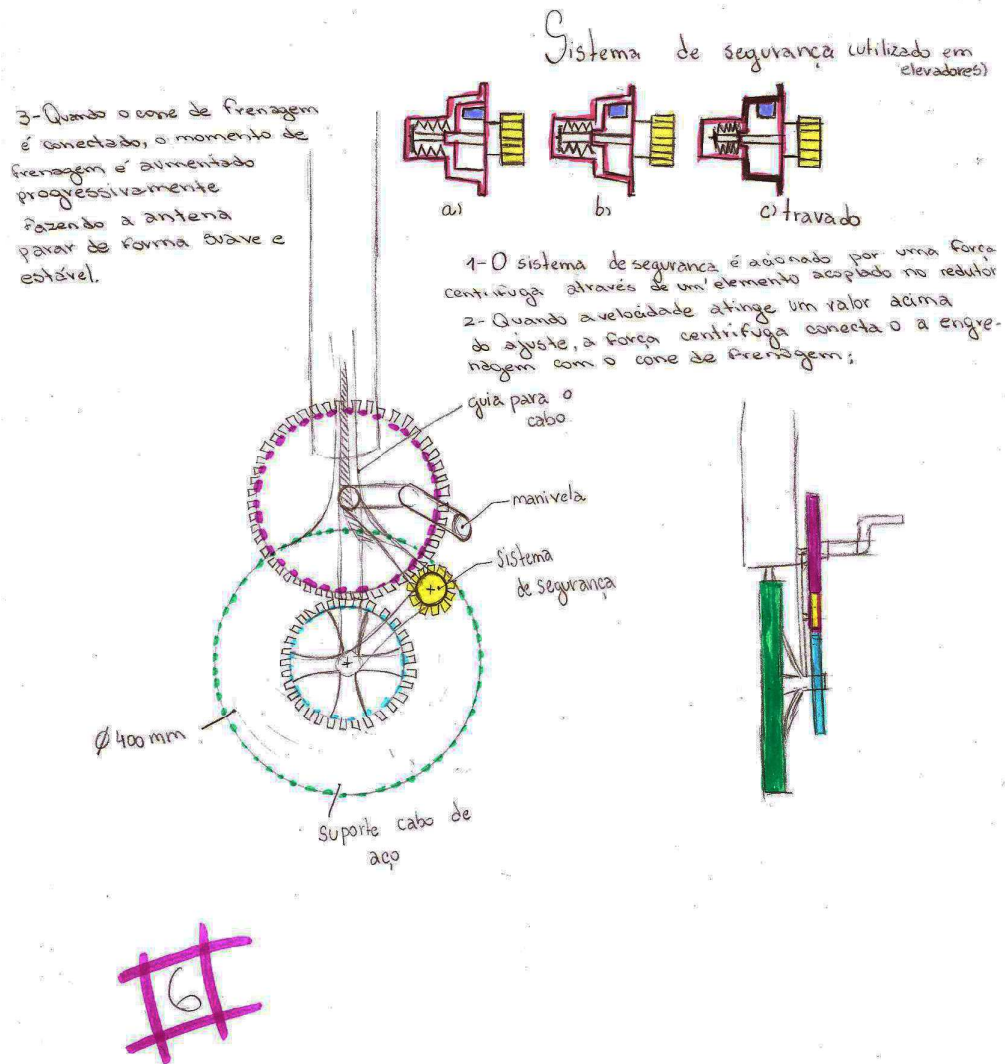 Sistema de segurança (utilizado em
elevadores)
3-Quando o cone de frenagem
é conectado, o momento de
frenagem é aumentado
progressivamente
fazendo a antena
parar de forma suave e
estável.
a)
b)
c) travado
1- O sistema de seguranca é acionado por uma força
centrifuga através de um elemento acoplado no redutor
2- Quando a velocidade atinge um valor acima
do ajuste, a força centrífuga conecta o a engre-
nagem com o cone de frenagem;
guia para o
cabo
manivela
sistema
de segurança
Ø 400 mm
suporte cabo de
aço
6